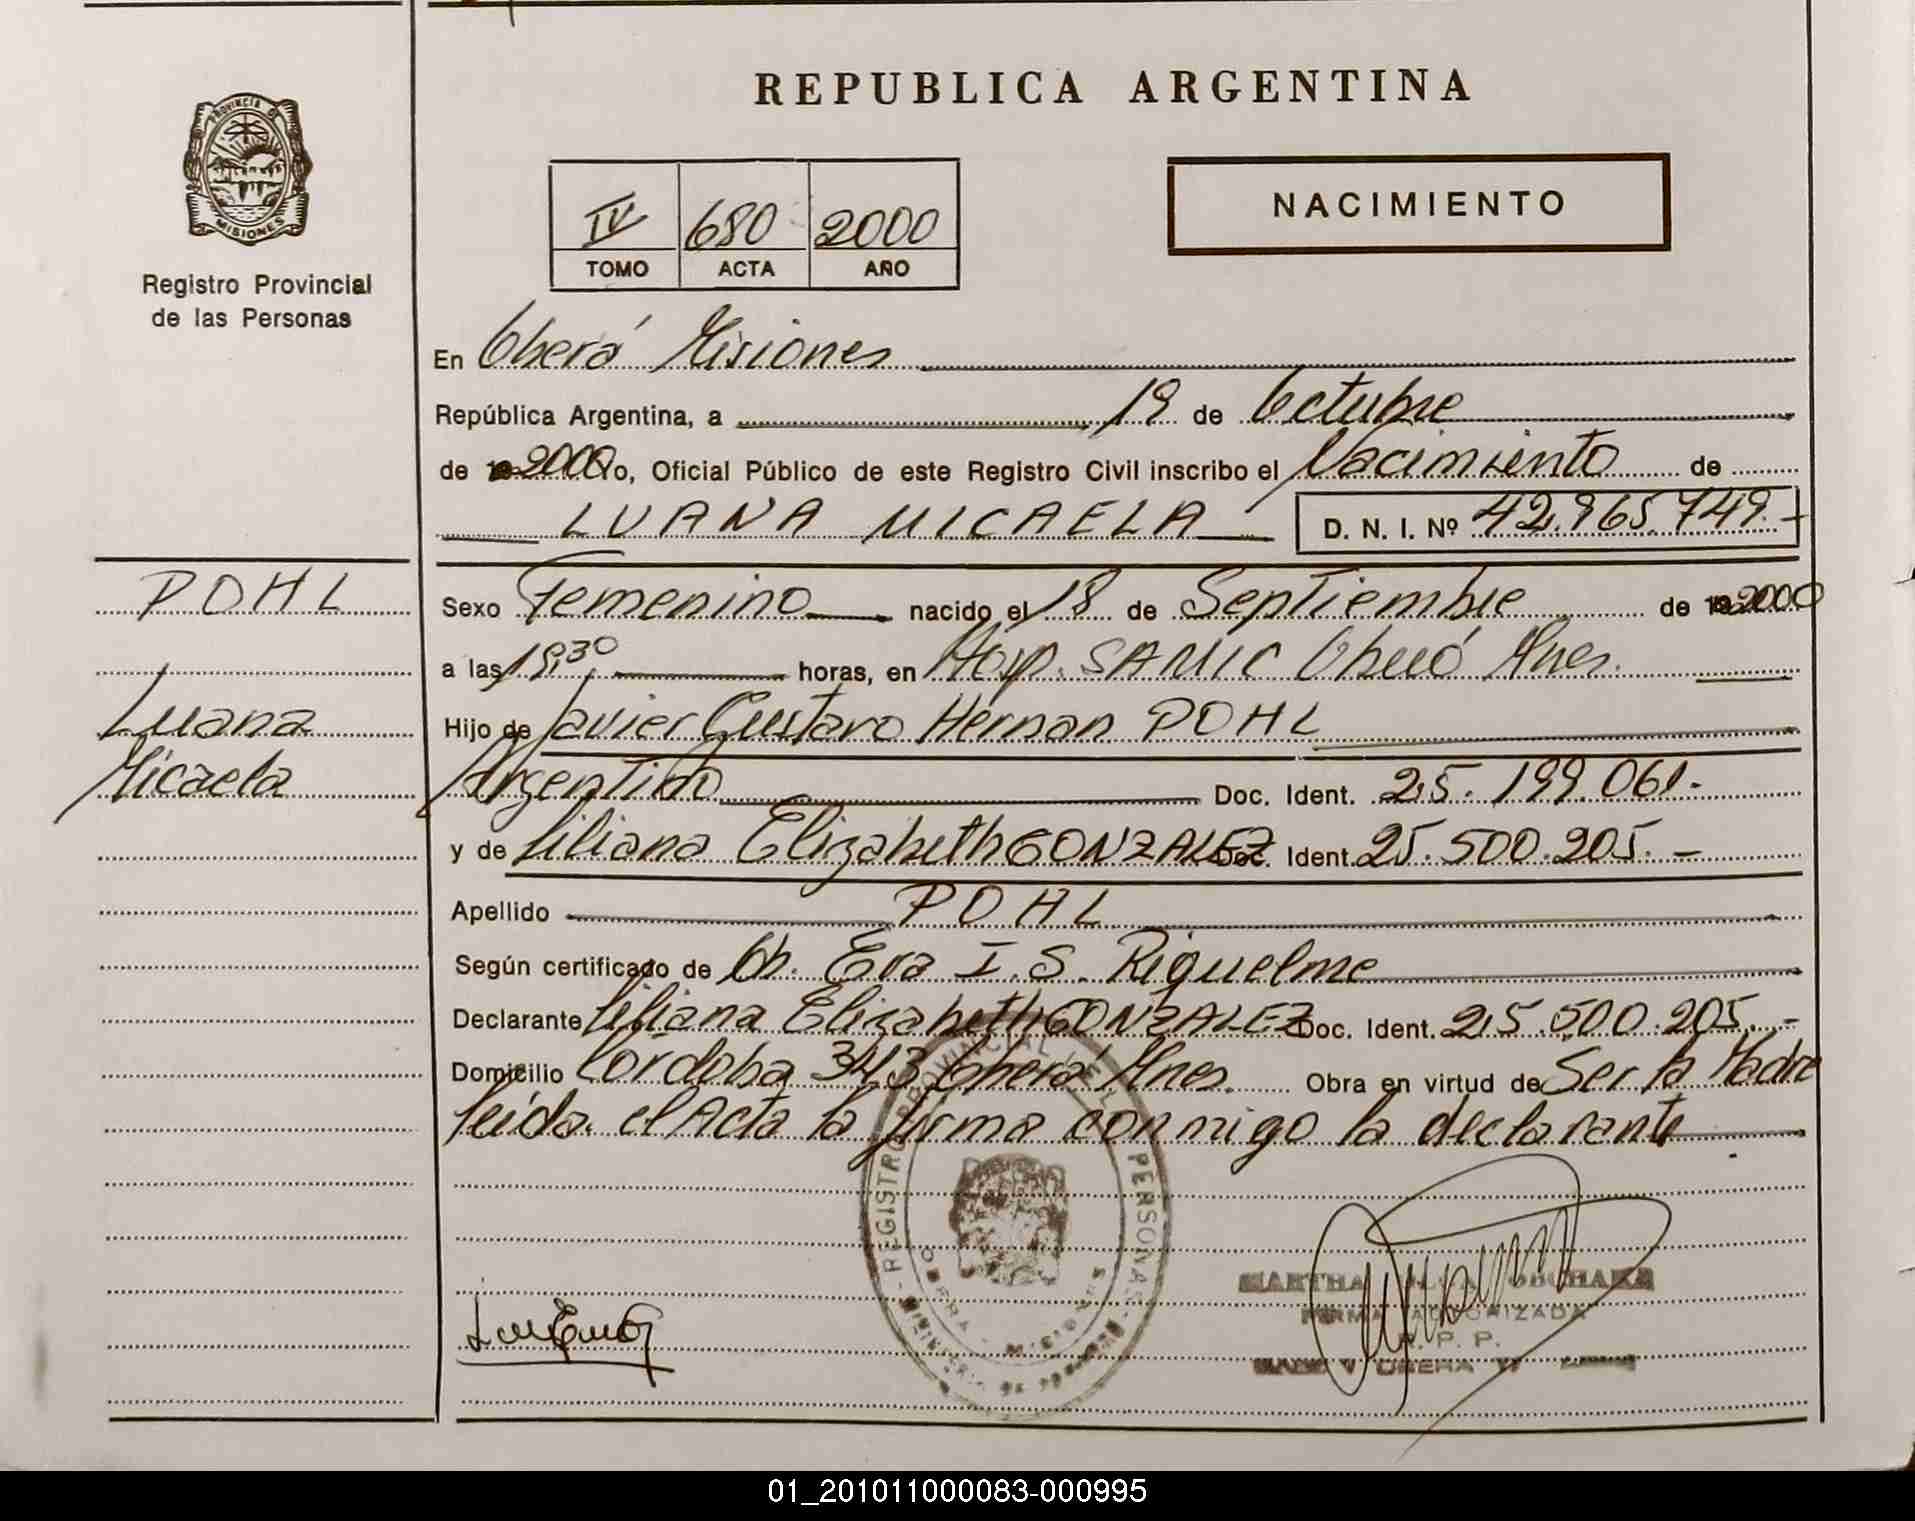 PROVINCIA DE
MISIONES
Registro Provincial
de las Personas
REPUBLICA ARGENTINA
NACIMIENTO
IV 680 2000
TOMO ACTA AÑO
En Oberá Misiones
República Argentina, a 19 de Octubre
de 2000 Yo, Oficial Público de este Registro Civil inscribo el Nacimiento de
LUANA MICAELA D. N. I. Nº 42.965.749.-
POHL
Luana
Micaela
Sexo Femenino nacido el 18 de Septiembre de 2000
a las horas, en Hosp. SAMIC Oberá Mnes.
Hijo de Javier Gustavo Hernan POHL
Argentino Doc. Ident. 25.199.061.-
y de Liliana Elizabeth GONZALEZ Doc. Ident. 25.500.205.-
Apellido POHL
Según certificado de Ob. Eva I. S. Riquelme
Declarante Liliana Elizabeth GONZALEZ Doc. Ident. 25.500.205.-
Domicilio Córdoba 343 Oberá Mnes. Obra en virtud de Ser la Madre
leída el Acta la firma conmigo la declarante
REGISTRO PROVINCIAL DE L PERSONAS
OBERA - MISIONES
MARTHA
FIRMA AUTORIZADA
R. P. P.
OBERA
01_201011000083-000995